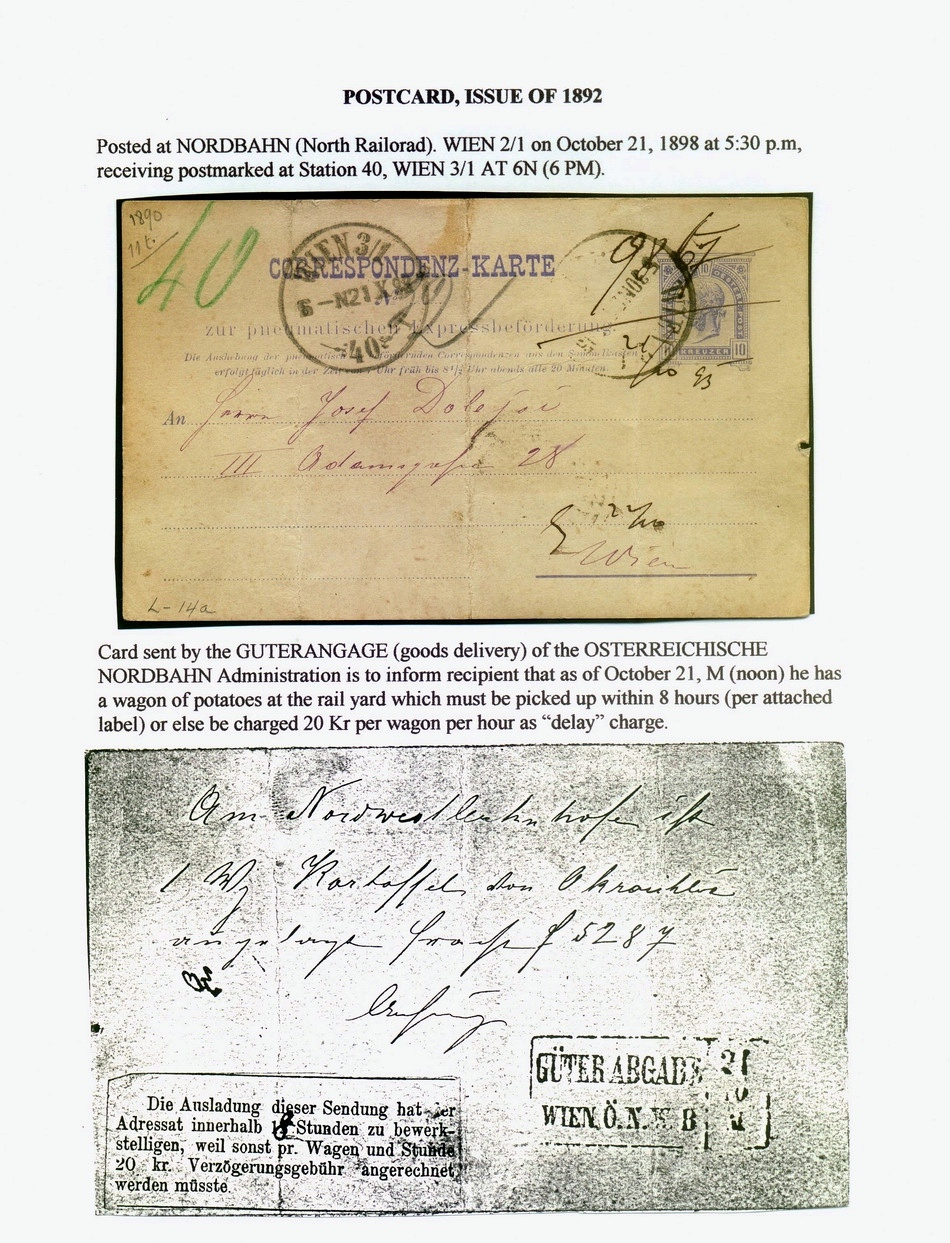 POSTCARD, ISSUE OF 1892
Posted at NORDBAHN (North Railorad). WIEN 2/1 on October 21, 1898 at 5:30 p.m,
receiving postmarked at Station 40, WIEN 3/1 AT 6N (6 PM).
1890
11 t.
40
WIEN 3/1
CORRESPONDENZ-KARTE
6-N21 X 98
40
zur pneumatischen Expressbeförderung.
10
KREUZER
10
Die Aushebung der pneumatisch zu befördernden Correspondenzen aus den Sammelkästen
erfolgt täglich in der Zeit von 7 Uhr früh bis 8½ Uhr abends alle 20 Minuten.
An Herrn Josef Dolejsi
III Adamsgasse 28
Wien
L-14a
Card sent by the GUTERANGAGE (goods delivery) of the OSTERREICHISCHE
NORDBAHN Administration is to inform recipient that as of October 21, M (noon) he has
a wagon of potatoes at the rail yard which must be picked up within 8 hours (per attached
label) or else be charged 20 Kr per wagon per hour as “delay” charge.
Am Nordwestbahnhofe ist
1 Wg Kartoffel von Okrouhlic
angelangt Fracht f 5287
GÜTER ABGABE 21
WIEN Ö.N.W.B
Die Ausladung dieser Sendung hat der
Adressat innerhalb 8 Stunden zu bewerk-
stelligen, weil sonst pr. Wagen und Stunde
20 kr. Verzögerungsgebühr angerechnet
werden müsste.